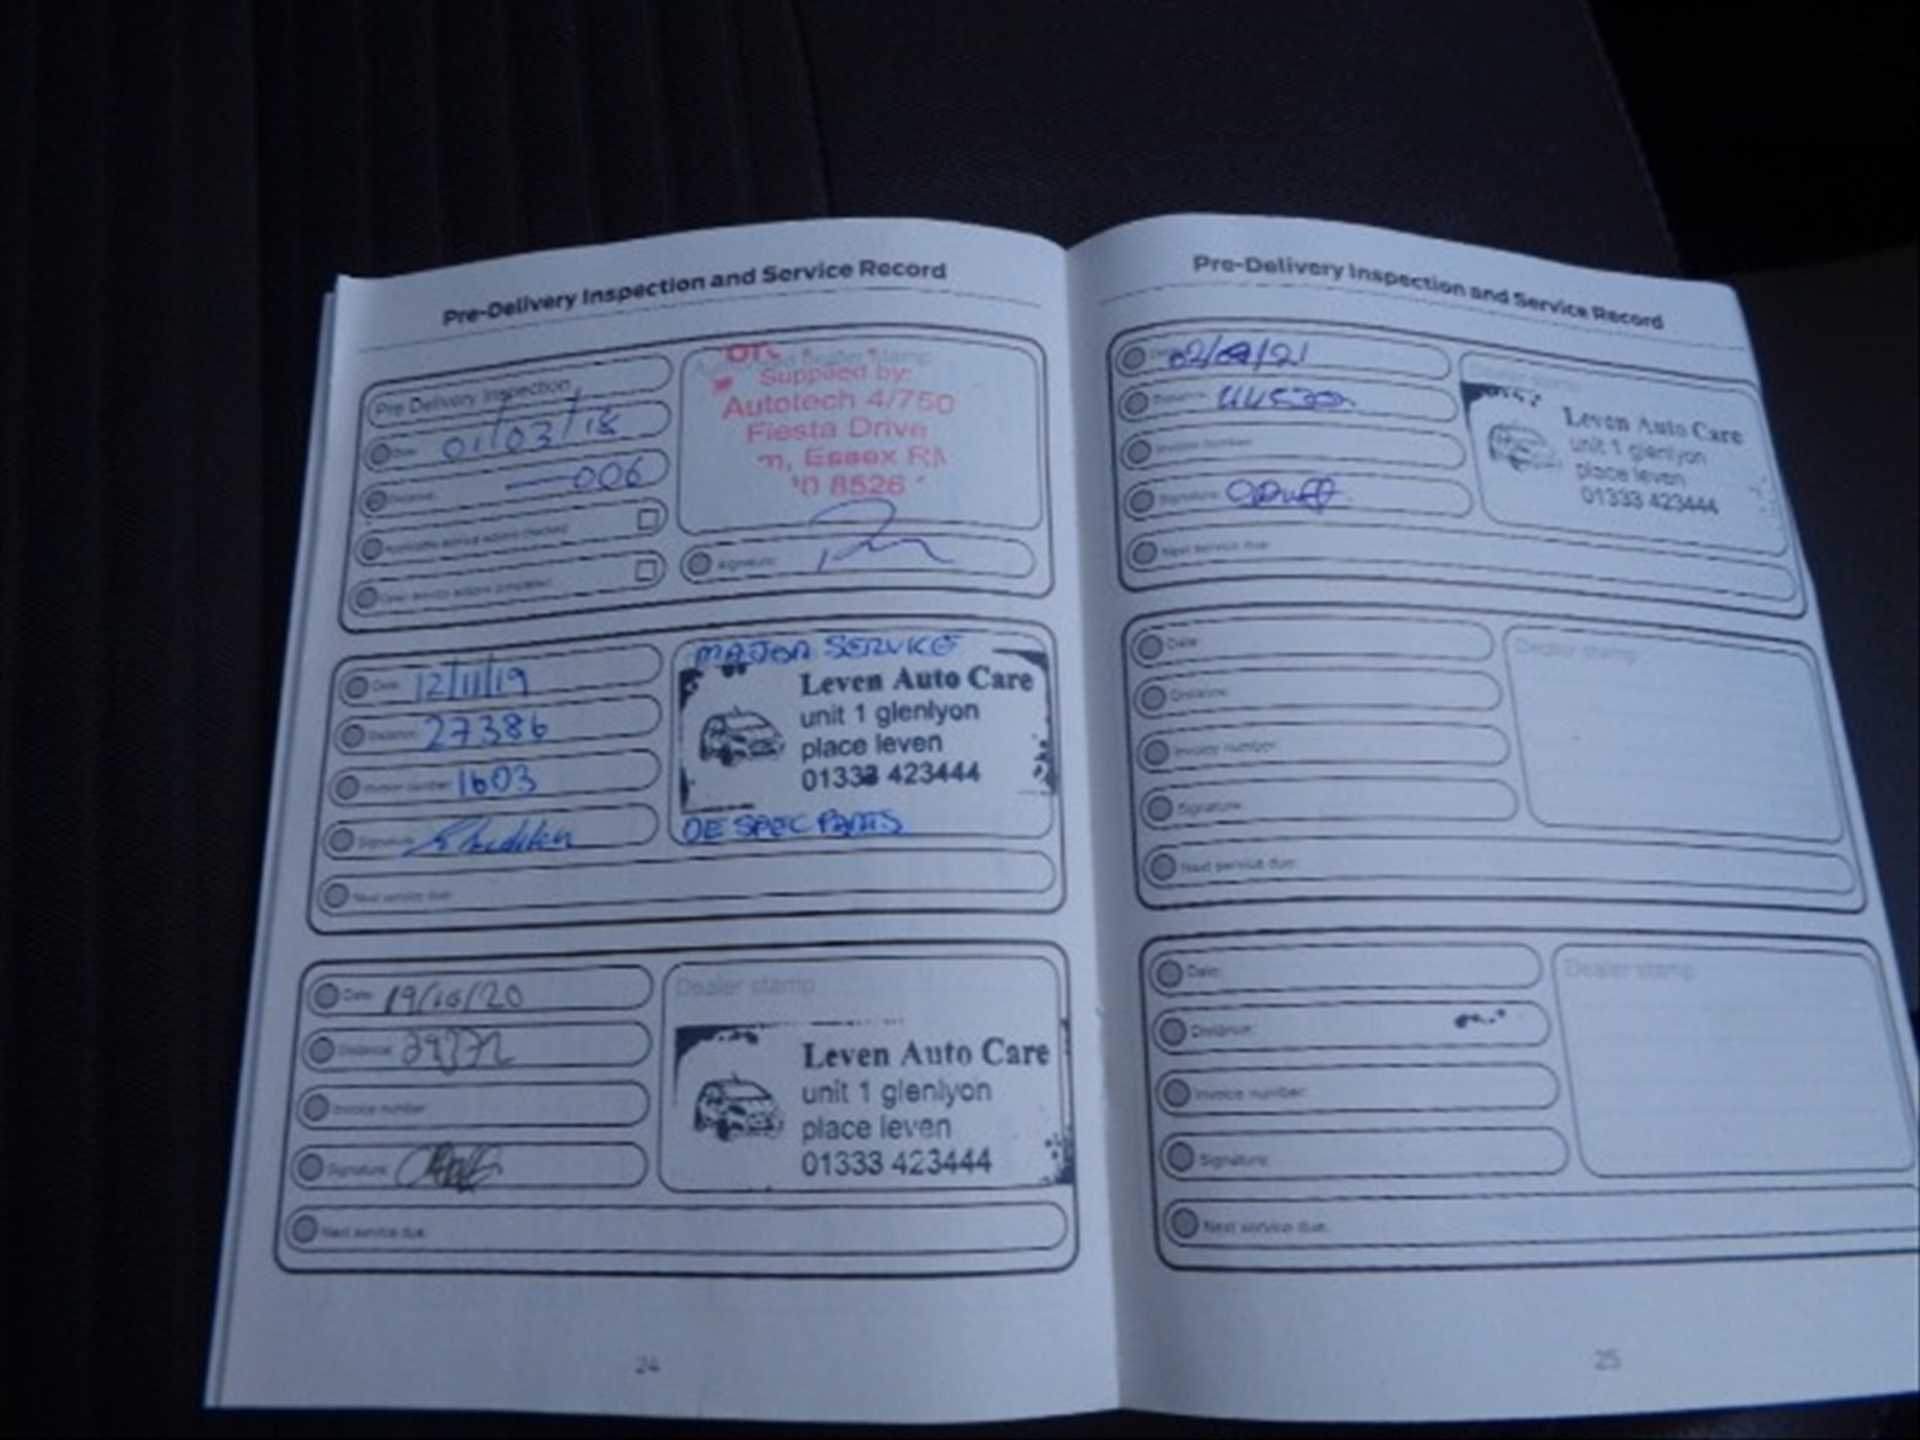 Pre-Delivery Inspection and Service Record
Pre Delivery Inspection
Date: 01/03/18
Distance: 006
Supplied by:
Autotech 4/750
Fiesta Drive
m, Essex RM
0 8526
Signature:
Date: 12/11/19
Distance: 27386
Invoice number: 1603
Signature:
Next service due:
MAJOR SERVICE
Leven Auto Care
unit 1 glenlyon
place leven
01333 423444
OE SPEC PARTS
Date: 19/10/20
Distance:
Invoice number:
Signature:
Next service due:
Dealer stamp
Leven Auto Care
unit 1 glenlyon
place leven
01333 423444
24
Pre-Delivery Inspection and Service Record
Distance:
Invoice number:
Signature:
Next service due:
Leven Auto Care
unit 1 glenlyon
place leven
01333 423444
Date:
Distance:
Invoice number:
Signature:
Next service due:
Dealer stamp
Date:
Distance:
Invoice number:
Signature:
Next service due:
Dealer stamp
25